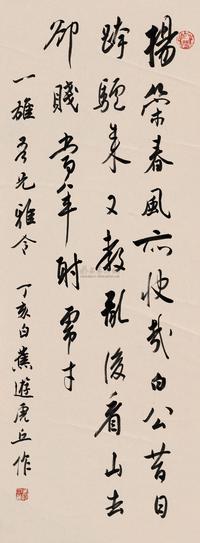 揚策春風亦快哉白公昔日
跨驢來又教亂後看山去
卻賤當年才
一雄吾兄雅令 丁亥白蕉遊虎丘作